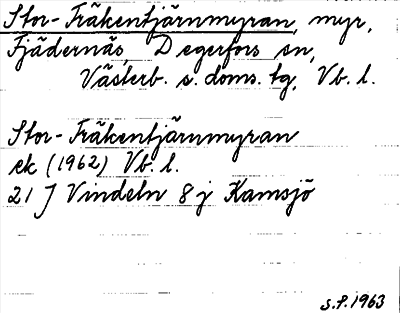 Stor-Fräkentjärnmyran, myr,
Fjädernäs Degerfors sn,
Västerb. s. doms. tg, Vb. l.
Stor-Fräkentjärnmyran
ek (1962) Vb. l.
21 J Vindeln 8 j Kamsjö
S.P. 1963